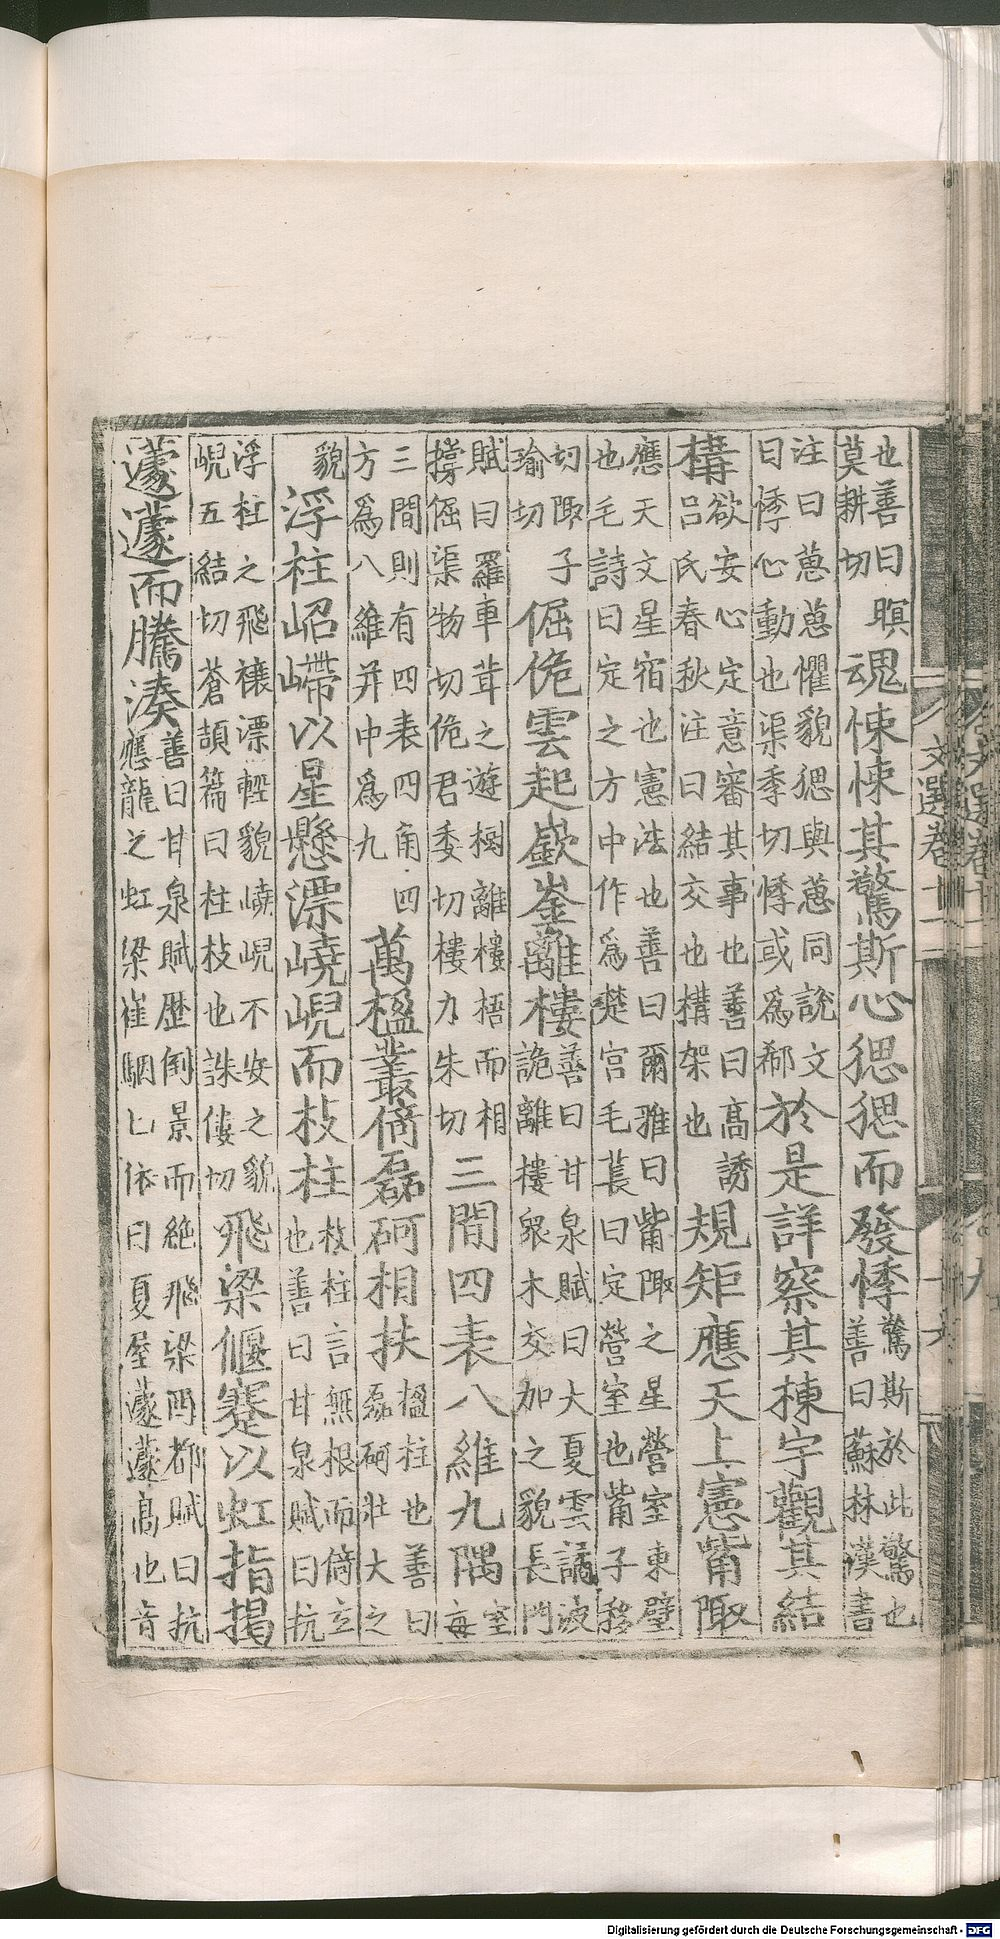 也善曰暝
莫耕切
魂悚悚其驚斯心㥓㥓而發悸
驚斯於此驚也
善曰蘇林漢書
注曰葸葸懼貌㥓與葸同說文
曰悸心動也渠季切悸或為欷
於是詳察其棟宇觀其結
構
欲安心定意審其事也善曰高誘
呂氏春秋注曰結交也構架也
規矩應天上憲觜陬
應天文星宿也憲法也善曰爾雅曰觜陬之星營室東壁
也毛詩曰定之方中作為楚宮毛萇曰定營室也觜子移
切陬子
瑜切
倔佹雲起嶔崟離樓
善曰甘泉賦曰大夏雲譎波
詭離樓眾木交加之貌長門
賦曰羅車茸之遊樹離樓梧而相
撐倔渠物切佹君委切樓力朱切
三間四表八維九隅
室
每
三間則有四表四角四
方為八維并中為九
萬楹叢倚磊砢相扶
楹柱也善曰
磊砢壯大之
貌
浮柱岹嵽以星懸漂嶢峴而枝柱
枝柱言無根而倚立
也善曰甘泉賦曰抗
浮柱之飛榱漂輕貌嶢峴不安之貌
峴五結切蒼頡篇曰柱枝也誅僂切
飛梁偃蹇以虹指揭
蘧蘧而騰湊
善曰甘泉賦歷倒景而絕飛梁西都賦曰抗
應龍之虹梁崔駰七依曰夏屋蘧蘧高也音
文選卷十一
十九
Digitalisierung gefördert durch die Deutsche Forschungsgemeinschaft - DFG